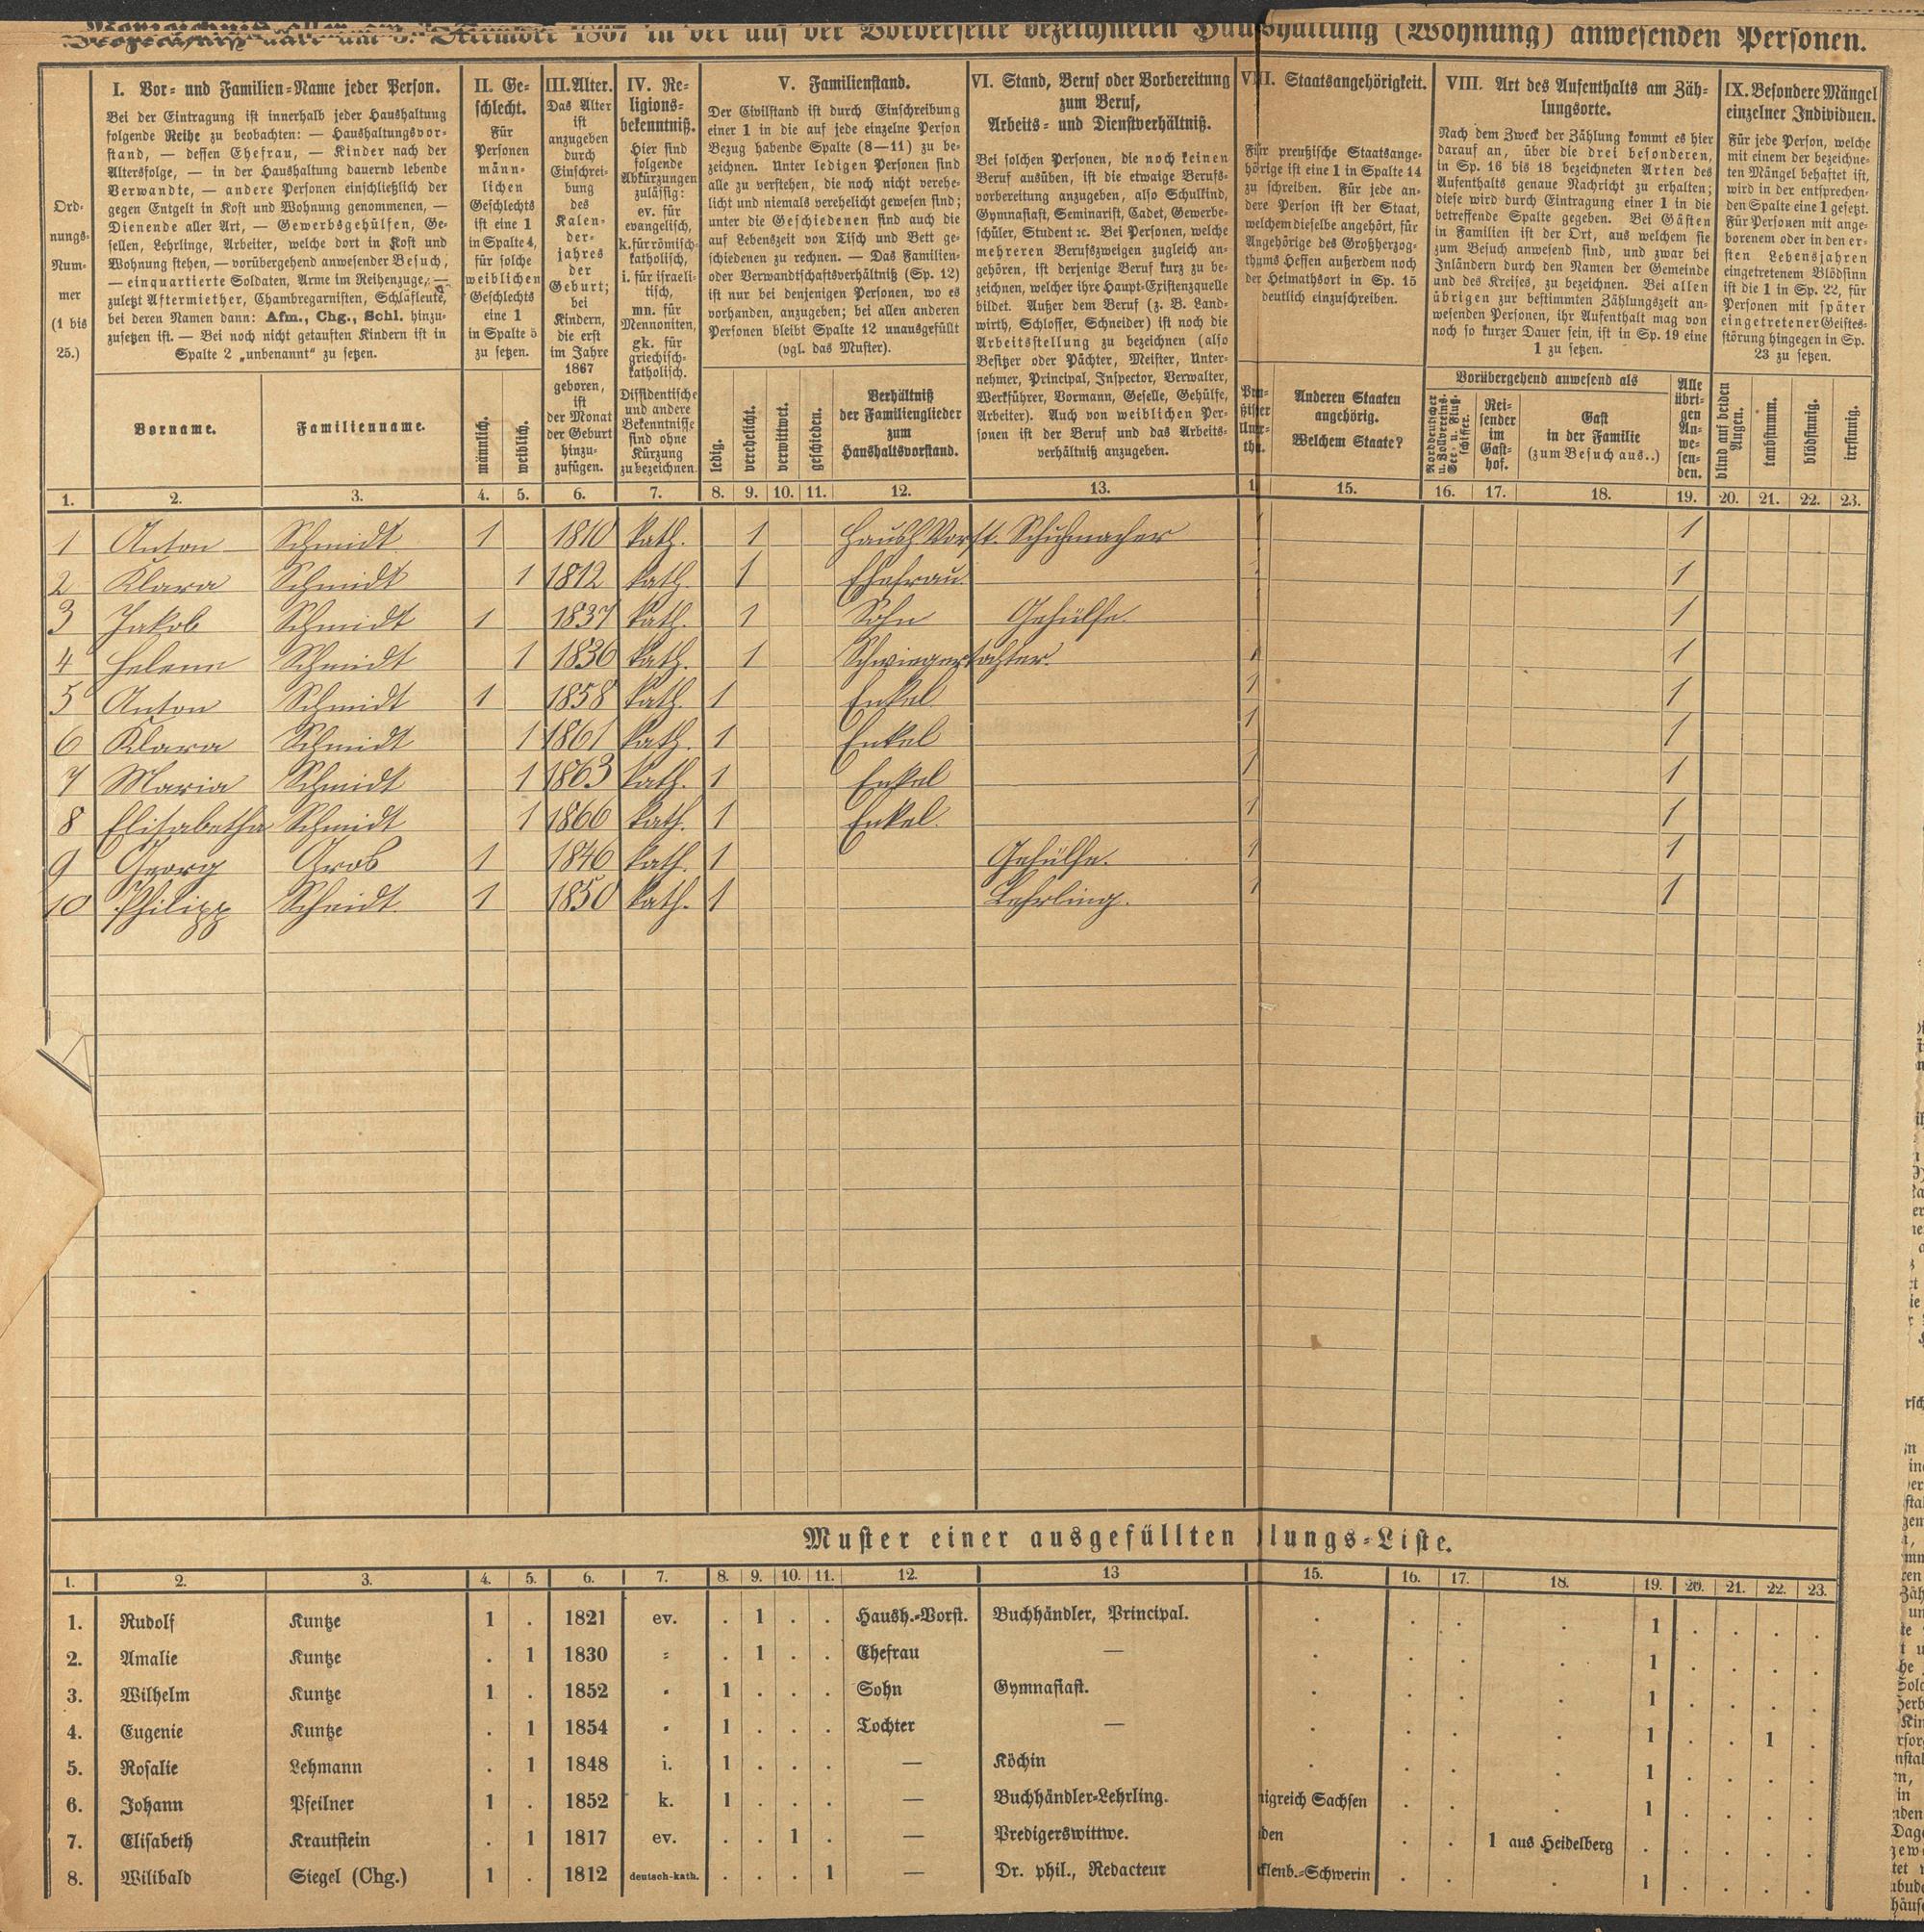 Verzeichniß aller am 3. Dezember 1867 in der auf der Vorderseite bezeichneten Haushaltung (Wohnung) anwesenden Personen.
Ord-
nungs-
Num-
mer
(1 bis
25.)
I. Vor- und Familien-Name jeder Person.
Bei der Eintragung ist innerhalb jeder Haushaltung
folgende Reihe zu beobachten: — Haushaltungsvor-
stand, — dessen Ehefrau, — Kinder nach der
Altersfolge, — in der Haushaltung dauernd lebende
Verwandte, — andere Personen einschließlich der
gegen Entgelt in Kost und Wohnung genommenen, —
Dienende aller Art, — Gewerbsgehülfen, Ge-
sellen, Lehrlinge, Arbeiter, welche dort in Kost und
Wohnung stehen, — vorübergehend anwesender Besuch,
— einquartierte Soldaten, Arme im Reihenzuge, —
zuletzt Aftermiether, Chambregarnisten, Schlafleute,
bei deren Namen dann: Afm., Chg., Schl. hinzu-
zusetzen ist. — Bei noch nicht getauften Kindern ist in
Spalte 2 „unbenannt“ zu setzen.
Vorname.
Familienname.
II. Ge-
schlecht.
Für
Personen
männ-
lichen
Geschlechts
ist eine 1
in Spalte 4,
für solche
weiblichen
Geschlechts
eine 1
in Spalte 5
zu setzen.
männlich.
weiblich.
III. Alter.
Das Alter
ist
anzugeben
durch
Einschrei-
bung
des
Kalen-
der-
jahres
der
Geburt;
bei
Kindern,
die erst
im Jahre
1867
geboren,
ist
der Monat
der Geburt
hinzu-
zufügen.
IV. Re-
ligions-
bekenntniß.
Hier sind
folgende
Abkürzungen
zulässig:
ev. für
evangelisch,
k. für römisch-
katholisch,
i. für israeli-
tisch,
mn. für
Mennoniten,
gk. für
griechisch-
katholisch.
Dissidentische
und andere
Bekenntnisse
sind ohne
Kürzung
zu bezeichnen.
V. Familienstand.
Der Civilstand ist durch Einschreibung
einer 1 in die auf jede einzelne Person
Bezug habende Spalte (8—11) zu be-
zeichnen. Unter ledigen Personen sind
alle zu verstehen, die noch nicht verehe-
licht und niemals verehelicht gewesen sind;
unter die Geschiedenen sind auch die
auf Lebenszeit von Tisch und Bett ge-
schiedenen zu rechnen. — Das Familien-
oder Verwandtschaftsverhältniß (Sp. 12)
ist nur bei denjenigen Personen, wo es
vorhanden, anzugeben; bei allen anderen
Personen bleibt Spalte 12 unausgefüllt
(vgl. das Muster).
ledig.
verehelicht.
verwittwet.
geschieden.
Verhältniß
der Familienglieder
zum
Haushaltsvorstand.
VI. Stand, Beruf oder Vorbereitung
zum Beruf,
Arbeits- und Dienstverhältniß.
Bei solchen Personen, die noch keinen
Beruf ausüben, ist die etwaige Berufs-
vorbereitung anzugeben, also Schulkind,
Gymnasiast, Seminarist, Cadet, Gewerbe-
schüler, Student ꝛc. Bei Personen, welche
mehreren Berufszweigen zugleich an-
gehören, ist derjenige Beruf kurz zu be-
zeichnen, welcher ihre Haupt-Existenzquelle
bildet. Außer dem Beruf (z. B. Land-
wirth, Schlosser, Schneider) ist noch die
Arbeitsstellung zu bezeichnen (also
Besitzer oder Pächter, Meister, Unter-
nehmer, Principal, Inspector, Verwalter,
Werkführer, Vormann, Geselle, Gehülfe,
Arbeiter). Auch von weiblichen Per-
sonen ist der Beruf und das Arbeits-
verhältniß anzugeben.
VII. Staatsangehörigkeit.
Für preußische Staatsange-
hörige ist eine 1 in Spalte 14
zu schreiben. Für jede an-
dere Person ist der Staat,
welchem dieselbe angehört, für
Angehörige des Großherzog-
thums Hessen außerdem noch
der Heimathsort in Sp. 15
deutlich einzuschreiben.
Anderen Staaten
angehörig.
Welchem Staate?
VIII. Art des Aufenthalts am Zäh-
lungsorte.
Nach dem Zweck der Zählung kommt es hier
darauf an, über die drei besonderen,
in Sp. 16 bis 18 bezeichneten Arten des
Aufenthalts genaue Nachricht zu erhalten;
diese wird durch Eintragung einer 1 in die
betreffende Spalte gegeben. Bei Gästen
in Familien ist der Ort, aus welchem sie
zum Besuch anwesend sind, und zwar bei
Inländern durch den Namen der Gemeinde
und des Kreises, zu bezeichnen. Bei allen
übrigen zur bestimmten Zählungszeit an-
wesenden Personen, ihr Aufenthalt mag von
noch so kurzer Dauer sein, ist in Sp. 19 eine
1 zu setzen.
Vorübergehend anwesend als
Norddeutscher
u. Zollvereins-
See- u. Fluß-
schiffer.
Rei-
sender
im
Gast-
hof.
Gast
in der Familie
(zum Besuch aus..)
Alle
übri-
gen
An-
we-
sen-
den.
IX. Besondere Mängel
einzelner Individuen.
Für jede Person, welche
mit einem der bezeichne-
ten Mängel behaftet ist,
wird in der entsprechen-
den Spalte eine 1 gesetzt.
Für Personen mit ange-
borenem oder in den er-
sten Lebensjahren
eingetretenem Blödsinn
ist die 1 in Sp. 22, für
Personen mit später
eingetretener Geistes-
störung hingegen in Sp.
23 zu setzen.
blind auf beiden
Augen.
taubstumm.
blödsinnig.
irrsinnig.
1. 2. 3. 4. 5. 6. 7. 8. 9. 10. 11. 12. 13. 1 15. 16. 17. 18. 19. 20. 21. 22. 23.
1 Anton Schmidt 1 1810 kath. 1 Haush. Vorst. Schuhmacher 1 1
2 Klara Schmidt 1 1812 kath. 1 Ehefrau 1 1
3 Jakob Schmidt 1 1837 kath. 1 Sohn Gehülfe. 1
4 Helena Schmidt 1 1836 kath. 1 Schwiegertochter. 1 1
5 Anton Schmidt 1 1858 kath. 1 Enkel 1 1
6 Klara Schmidt 1 1861 kath. 1 Enkel 1 1
7 Maria Schmidt 1 1863 kath. 1 Enkel 1 1
8 Elisabetha Schmidt 1 1866 kath. 1 Enkel. 1 1
9 Georg Gros 1 1846 kath. 1 Gehülfe. 1 1
10 Philipp Scheidt 1 1850 kath. 1 Lehrling. 1 1
Muster einer ausgefüllten lungs-Liste.
1. 2. 3. 4. 5. 6. 7. 8. 9. 10. 11. 12. 13 15. 16. 17. 18. 19. 20. 21. 22. 23.
1. Rudolf Kuntze 1 . 1821 ev. . 1 . . Haush.-Vorst. Buchhändler, Principal. . . . . 1 . . . .
2. Amalie Kuntze . 1 1830 = . 1 . . Ehefrau — . . . . 1 . . . .
3. Wilhelm Kuntze 1 . 1852 " 1 . . . Sohn Gymnasiast. . . . . 1 . . . .
4. Eugenie Kuntze . 1 1854 " 1 . . . Tochter — . . . . 1 . . 1 .
5. Rosalie Lehmann . 1 1848 i. 1 . . . — Köchin . . . . 1 . . . .
6. Johann Pfeilner 1 . 1852 k. 1 . . . — Buchhändler-Lehrling. nigreich Sachsen . . . 1 . . . .
7. Elisabeth Krautstein . 1 1817 ev. . . 1 . — Predigerswittwe. den . . 1 aus Heidelberg . . . . .
8. Wilibald Siegel (Chg.) 1 . 1812 deutsch-kath. . . . 1 — Dr. phil., Redacteur cklenb.-Schwerin . . . 1 . . . .